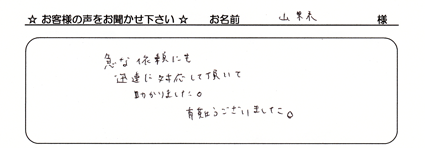 ☆ お客様の声をお聞かせ下さい ☆ お名前 山 様
急な依頼にも
迅速に対応して頂いて
助かりました。
有難うございました。